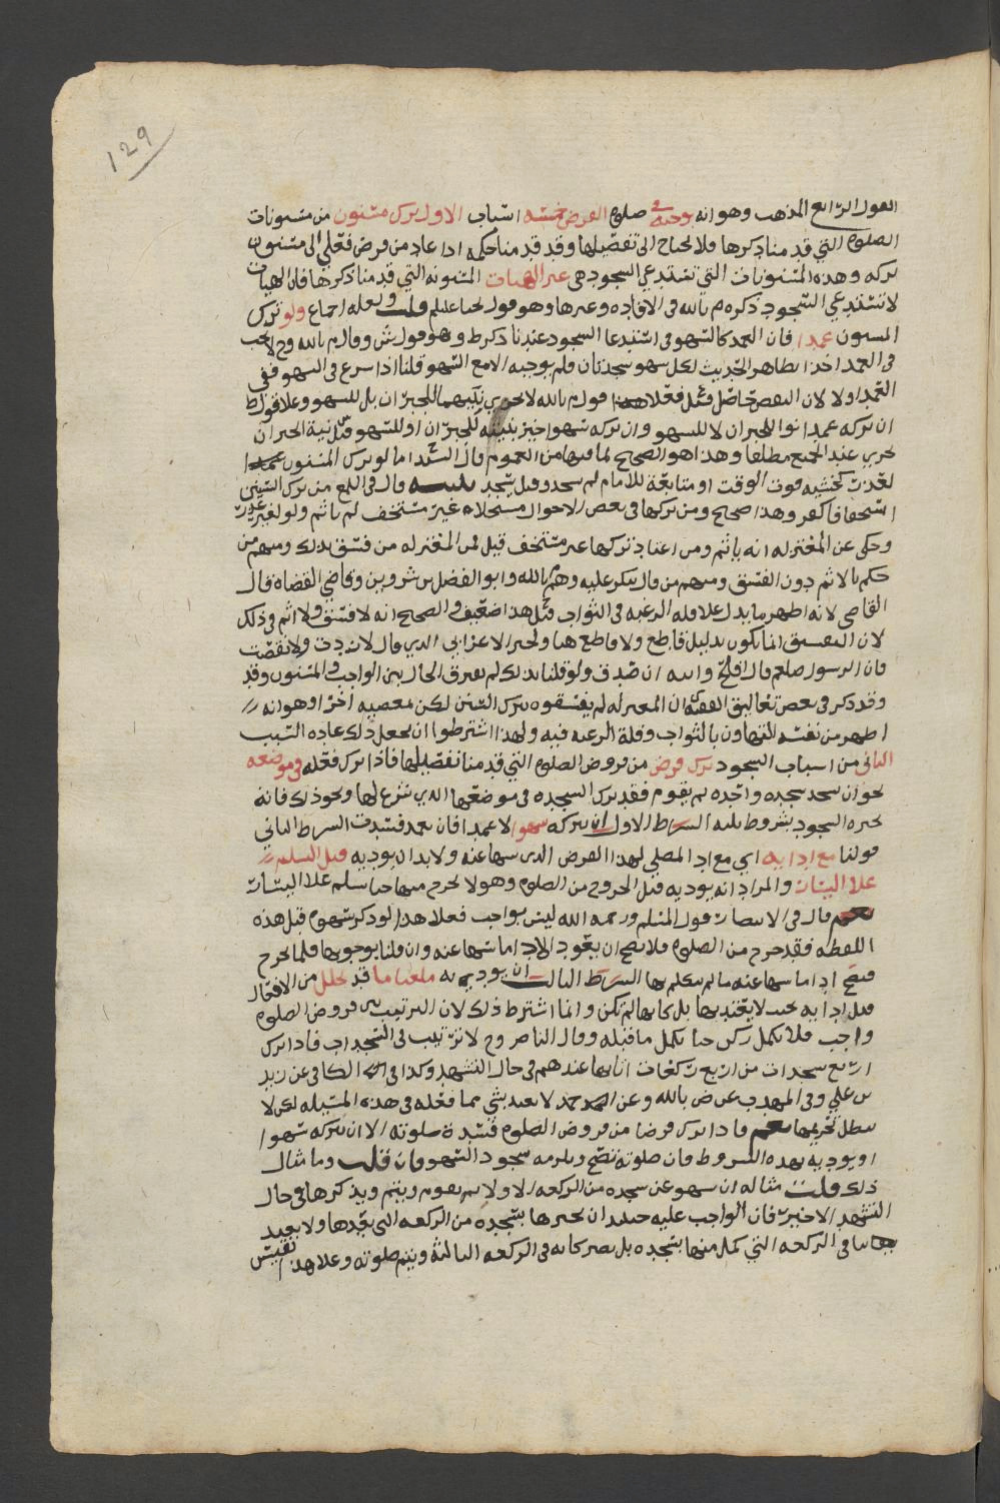 129
القول الرابع المذهب وهو انه يوجبه في صلوة الفرض خمسة اسباب الاول ترك مسنون من مسنونات
الصلوة التي قد منا ذكرها فلا نحتاج الى تفصيلها وقد قدمنا حكم اذا عاد من فرض فعلي الى مسنون
تركه وهذه المسنونات التي تستدعي السجود هي غير الهيات المسنونه التي قد منا ذكرها فان الهيات
لا تستدعي السجود ذكره م بالله في الافاده وغيرها وهو قول يحيا عليلم قلت ولعله اجماع ولو ترك
المسنون عمدا فان العمد كالسهو في استدعا السجود عندنا ذكره ط وهو قول ش وقال م بالله وح لا يجب
في العمد اخذا بظاهر الحديث لكل سهو سجدتان فلم يوجبه الا مع السهو قلنا اذا شرع في السهو ففي
العمد اولا لان النقص حاصل فعلا قول م بالله لا يحوي نيتهما للجبران بل للسهو وعلا قول ط
ان تركه عمدا نوا للجبران لا للسهو وان تركه سهوا خير بنيته للجبران او للسهو نية الجبران
تجزي عند الجميع مطلقا وهذا هو الصحيح لما فيها من العموم قال السيد اما لو ترك المسنون عمدا
لعذر كخشيه فوت الوقت او متابعة للامام لم يسجد وقيل يسجد قال في اللمع من ترك السنن
استخفافا كفر وهذا صحيح ومن تركها في بعض الاحوال غير مستخف لم ياثم ولو لغير عذر
وحكى عن المعتزله انه ياثم ومن اعتاد تركها غير مستخف قيل فمن المعتزله من فسق بذلك ومنهم من
حكم بالاثم دون الفسق ومنهم من قال ينكر عليه وهم م بالله وابو الفضل بن شروين وقاضي القضاه قال
القاضي لانه اظهر ما يدل علا قله الرغبه في الثواب هذا ضعيف والصحيح انه لا فسق ولا اثم في ذلك
لان التفسيق انما يكون بدليل قاطع ولا قاطع هنا ولخبر الاعرابي الذي قال لا زدت ولا نقصت
فان الرسول صلعم قال افلح والله ان صدق ولو قلنا بذلك لم يفرق الحال بين الواجب والمسنون وقد
وقد ذكر في بعض تعاليق ان المعتزله لم يفسقوه بترك السنن لكن بمعصيه اخرا وهو انه
اظهر من نفسه التهاون بالثواب وقلة الرغبه فيه ولهذا اشترطوا ان يجعل ذلك عاده السبب
الثاني من اسباب السجود ترك فرض من فروض الصلوة التي قد منا تفصيلها فاذا ترك فعله في موضعه
نحو ان يسجد سجده واحده ثم يقوم فقد ترك السجده في موضعها الذي شرع لها ونحو ذلك فانه
يجبره السجود بشروط ثلثه الشرط الاول ان يتركه سهوا لا عمدا فان تعمد فسدت الشرط الثاني
قولنا مع ادايه اي مع ادا المصلي لهذا الفرض الذي سها عنه ولا بد ان يوديه قبل التسليم
علا اليسار والمراد انه يوديه قبل الخروج من الصلوة وهو لا يخرج منها حتا يسلم علا اليسار
نعم قال في الانتصار قول المسلم ورحمه الله ليس بواجب فعلا هذا لو ذكر سهوه قبل هذه
اللفظه فقد خرج من الصلوة فلا يصح ان يعود لاداما سها عنه وان قلنا بوجوبها فلما يخرج
فيصح ادا ما سها عنه ما لم يتكلم بها الشرط الثالث ان يوديه ملغيا ما قد تخلل من الافعال
قبل ادايه بحيث لا يعتد بها بل كانها لم تكن وانما اشترط ذلك لان الترتيب بين فروض الصلوة
واجب فلا تكمل ركن حتا تكمل ما قبله وقال الناصر وح لا ترتيب في السجدات فاذا ترك
اربع سجدات من اربع ركعات اتا بها عندهم في حال التشهد وكذا في الكافي عن زيد
بن علي وفي المهذب عن ض بالله وعن احمد لا يعتد بشي مما فعله في هذه المسئله لكن لا
تبطل تحريمها نعم فاذا ترك فرضا من فروض الصلوة فسدة صلوته الا ان يتركه سهوا
او يوديه بهذه الشروط فان صلوته تصح ويلزمه سجود السهو فان قلت وما مثال
ذلك قلت مثاله ان يسهو عن سجده من الركعه الاولا ثم يقوم ويتم ويذكرها في حال
التشهد الاخير فان الواجب عليه حينئذ ان يجبرها بسجده من الركعه التي بعدها ولا يعتد
بما بقي في الركعه التي كمل منها بسجده بل يصير كانه في الركعه الثالثة ويتم صلوته وعلا هذا فقس